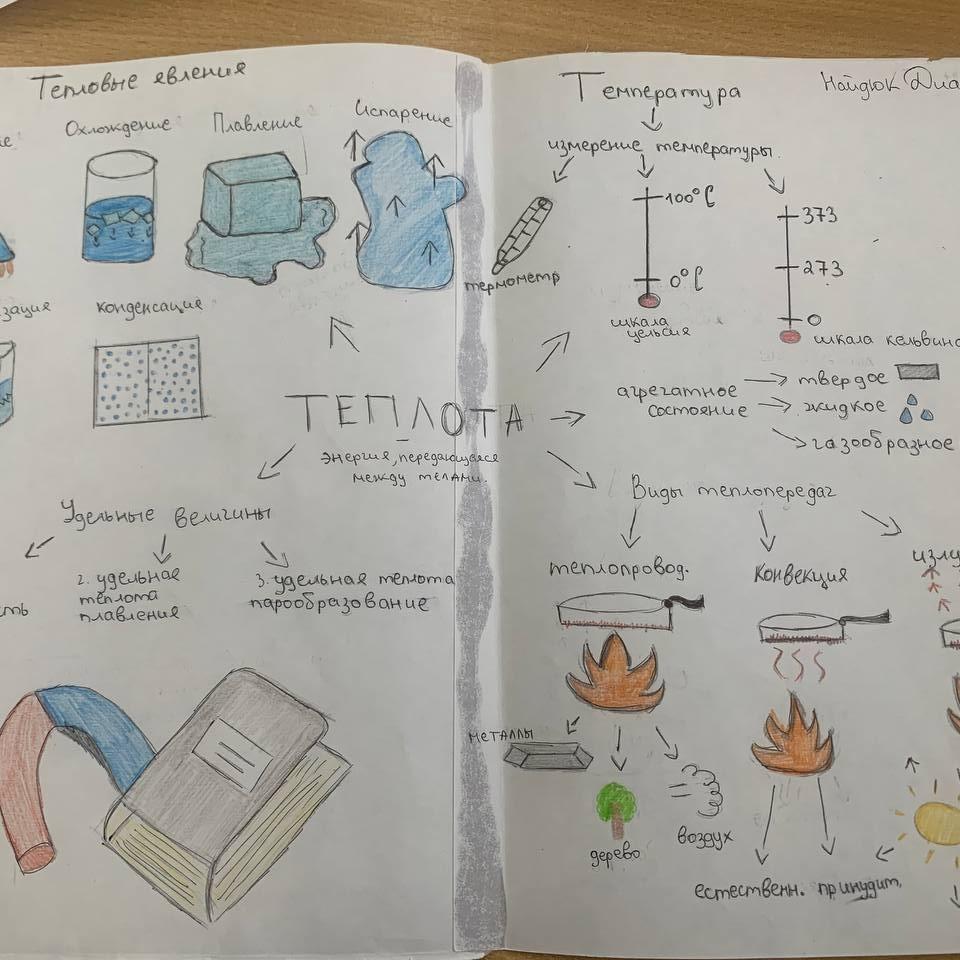 Тепловые явления
Охлаждение
Плавление
Испарение
конденсация
ТЕПЛОТА
энергия, передающаяся
между телами.
Удельные величины
2. удельная
теплота
плавления
3. удельная теплота
парообразование
Температура
Найдюк Диа
измерение температуры.
термометр
100°C
0°C
шкала
цельсия
373
273
0
шкала кельвина
агрегатное
состояние
твердое
жидкое
газообразное
Виды теплопередач
теплопровод.
конвекция
излу
металлы
дерево
воздух
естественн. принудит.